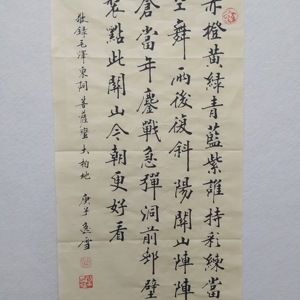 赤橙黄綠青藍紫誰持彩練當
空舞雨後復斜陽關山陣陣
蒼當年鏖戰急彈洞前邨壁
裝點此關山今朝更好看
敬錄毛澤東詞菩薩蠻大柏地 庚子